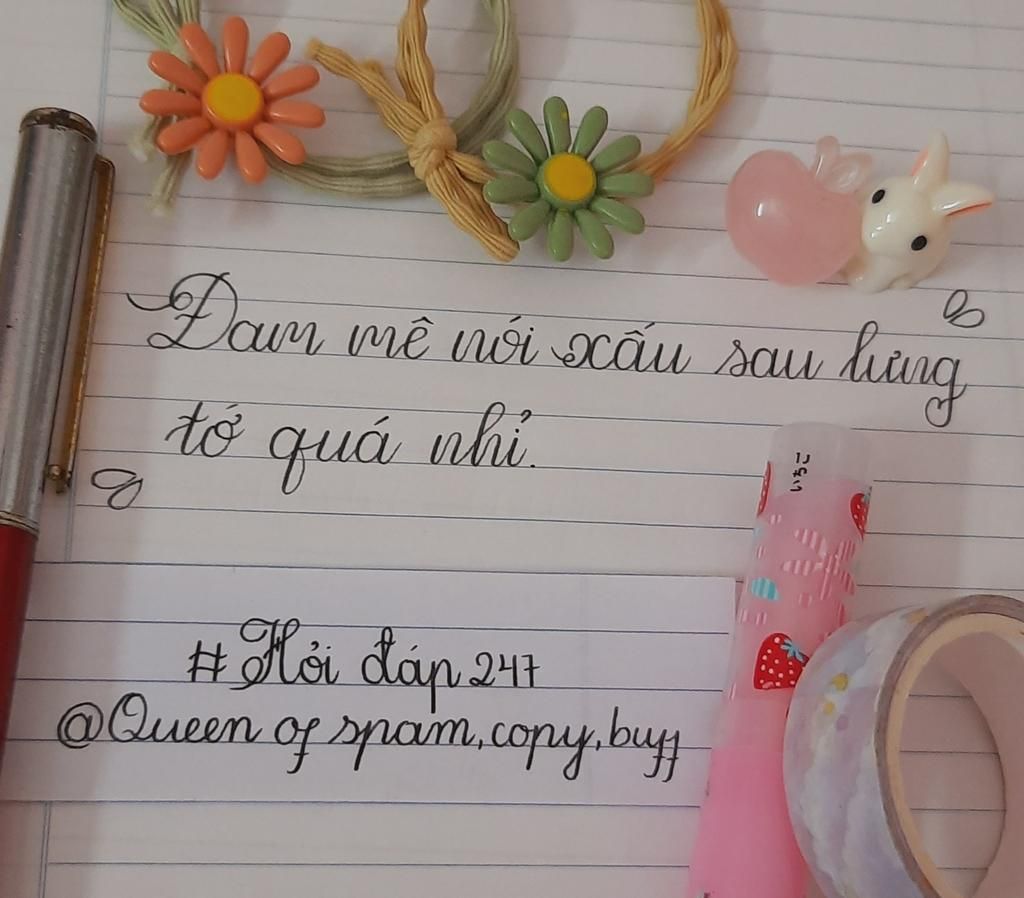 Đam mê nói xấu sau lưng
tớ quá nhỉ.
いちご
#Hỏi đáp 247
@Queen of spam, copy, buff